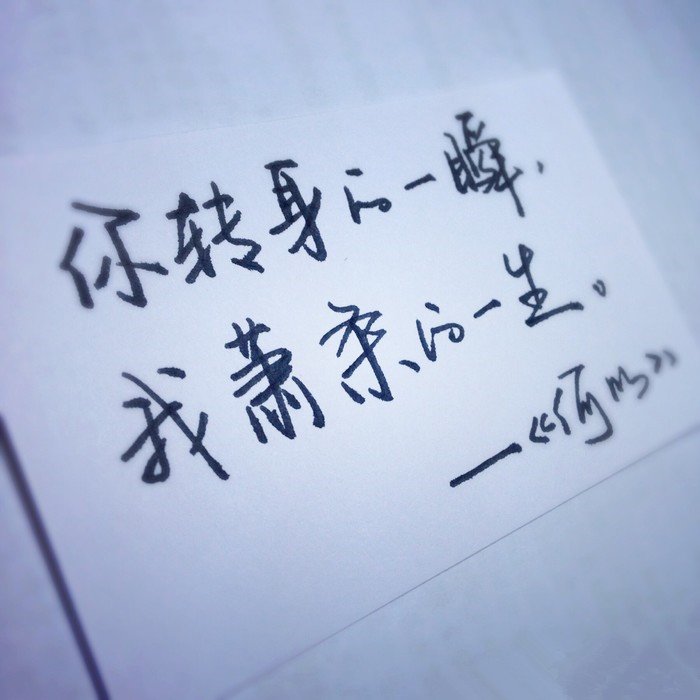 你转身的一瞬，
我萧条的一生。
—《何以》